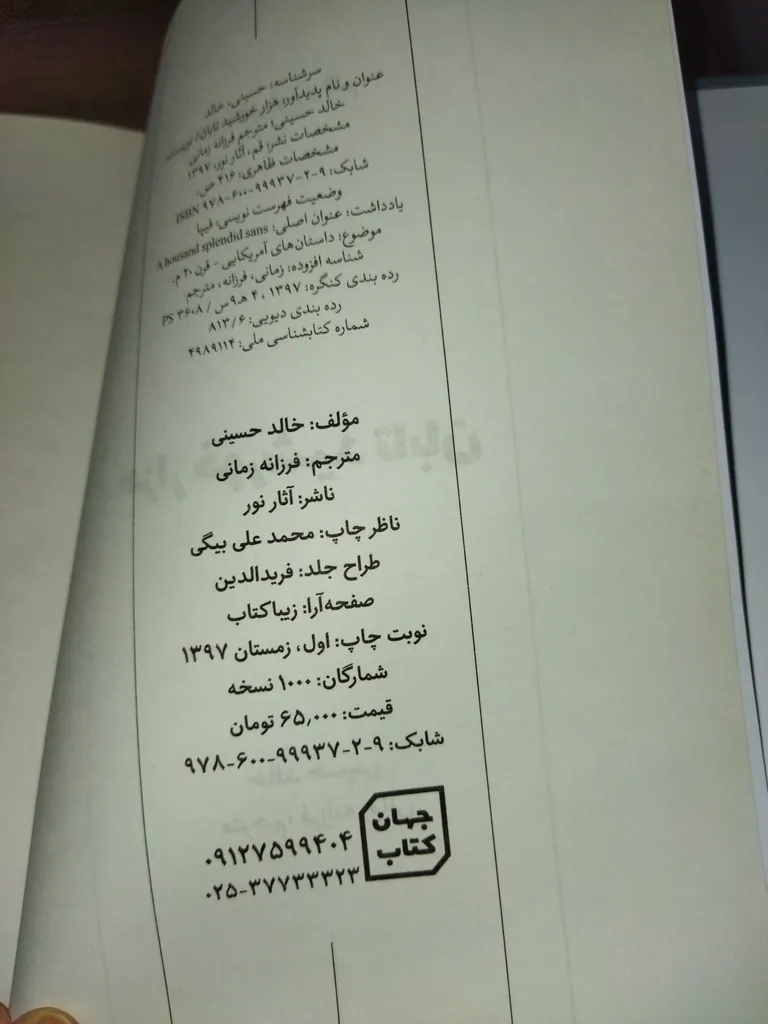 سرشناسه: حسینی، خالد
عنوان و نام پدیدآور: هزار خورشید تابان/ نویسنده
خالد حسینی؛ مترجم فرزانه زمانی
مشخصات نشر: قم، آثار نور، ۱۳۹۷
مشخصات ظاهری: ۴۱۶ ص.
شابک: ISBN ۹۷۸-۶۰۰-۹۹۹۳۷-۲-۹
وضعیت فهرست نویسی: فیپا
یادداشت: عنوان اصلی: A housand splendid sans
موضوع: داستان‌های آمریکایی - قرن ۲۰ م.
شناسه افزوده: زمانی، فرزانه، مترجم
رده بندی کنگره: ۱۳۹۷ ،۴ هـ ۹ س / PS ۳۶۰۸
رده بندی دیویی: ۸۱۳/۶
شماره کتابشناسی ملی: ۴۹۸۹۱۱۴
مؤلف: خالد حسینی
مترجم: فرزانه زمانی
ناشر: آثار نور
ناظر چاپ: محمد علی بیگی
طراح جلد: فریدالدین
صفحه‌آرا: زیباکتاب
نوبت چاپ: اول، زمستان ۱۳۹۷
شمارگان: ۱۰۰۰ نسخه
قیمت: ۶۵,۰۰۰ تومان
شابک: ۹۷۸-۶۰۰-۹۹۹۳۷-۲-۹
جهان
کتاب
۰۹۱۲۷۵۹۹۴۰۴
۰۲۵-۳۷۷۳۳۳۲۳